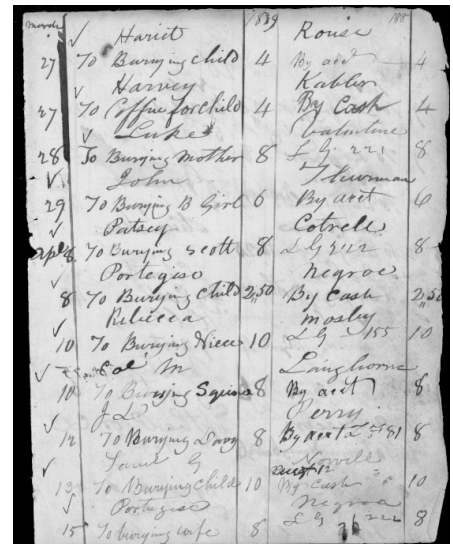 March 1889 188
Hariet Rouse
27 To Burying Child 4 By acct 4
Harvey Kabler
27 To Coffin for child 4 By Cash 4
Luke Valentine
28 To Burying Mother 8 L G 221 8
John Thurman
29 To Burying B Girl 6 By acct 6
Patsey Cotrell
Apl 8 To Burying Scott 8 L G 212 8
Portegise Negroe
8 To Burying Child 2,50 By Cash 2,50
Rebecca Mosby
10 To Burying Niece 10 L G 155 10
Col M Langhorne
10 To Burying Squire 8 By acct 8
J L Perry
12 To Burying Davy 8 By acct 81 8
Saml G Norvell
13 To Burying Child 10 By Cash 10
Portugise Negroe
15 To burying wife 8 L G 222 8